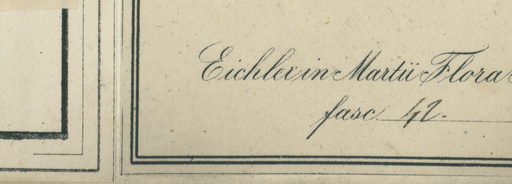 Eichler in Martii Flora
fasc. 42.